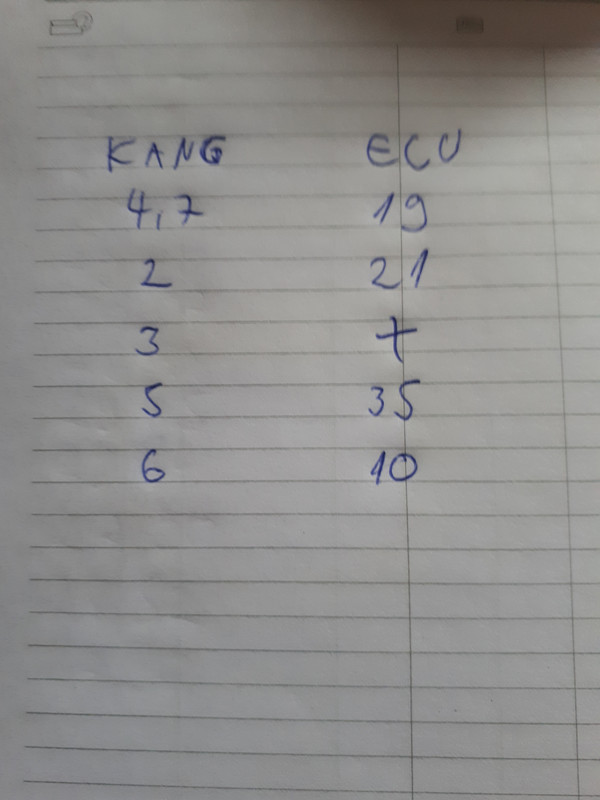 KANG ECU
4,7 19
2 21
3 +
5 35
6 10